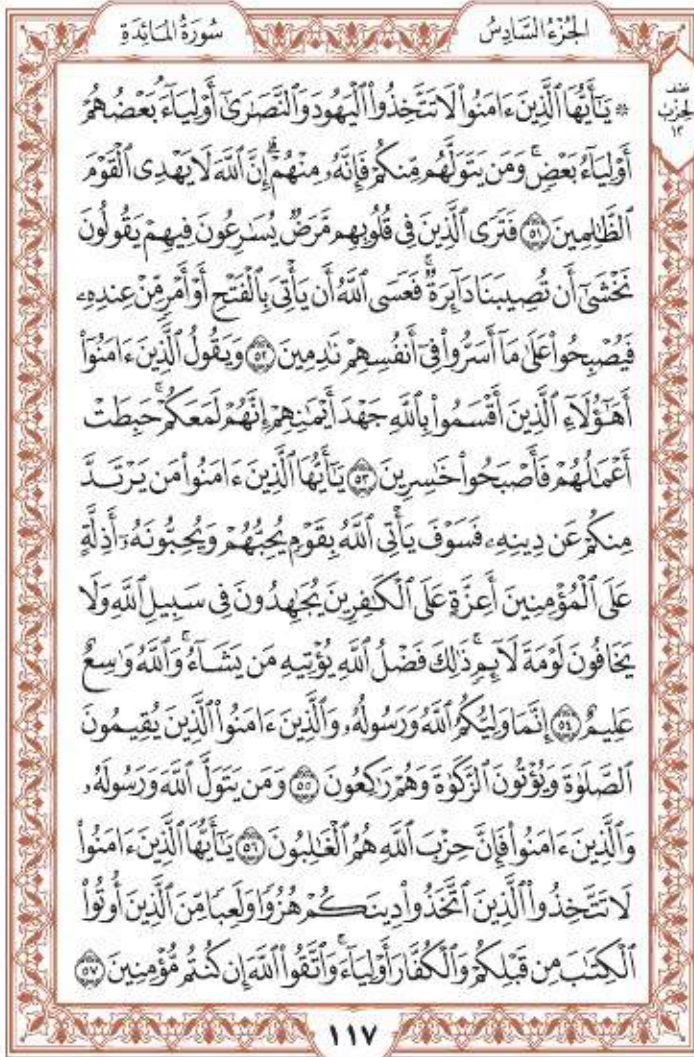 الجُزْءُ السَّادِسُ
سُورَةُ المَائِدَةِ
نصف
الحزب
١٢
۞ يَٰٓأَيُّهَا ٱلَّذِينَ ءَامَنُوا۟ لَا تَتَّخِذُوا۟ ٱلْيَهُودَ وَٱلنَّصَٰرَىٰٓ أَوْلِيَآءَ بَعْضُهُمْ
أَوْلِيَآءُ بَعْضٍ ۚ وَمَن يَتَوَلَّهُم مِّنكُمْ فَإِنَّهُۥ مِنْهُمْ ۗ إِنَّ ٱللَّهَ لَا يَهْدِى ٱلْقَوْمَ
ٱلظَّٰلِمِينَ ٥١ فَتَرَى ٱلَّذِينَ فِى قُلُوبِهِم مَّرَضٌ يُسَٰرِعُونَ فِيهِمْ يَقُولُونَ
نَخْشَىٰٓ أَن تُصِيبَنَا دَآئِرَةٌ ۚ فَعَسَى ٱللَّهُ أَن يَأْتِىَ بِٱلْفَتْحِ أَوْ أَمْرٍ مِّنْ عِندِهِۦ
فَيُصْبِحُوا۟ عَلَىٰ مَآ أَسَرُّوا۟ فِىٓ أَنفُسِهِمْ نَٰدِمِينَ ٥٢ وَيَقُولُ ٱلَّذِينَ ءَامَنُوٓا۟
أَهَٰٓؤُلَآءِ ٱلَّذِينَ أَقْسَمُوا۟ بِٱللَّهِ جَهْدَ أَيْمَٰنِهِمْ إِنَّهُمْ لَمَعَكُمْ ۚ حَبِطَتْ
أَعْمَٰلُهُمْ فَأَصْبَحُوا۟ خَٰسِرِينَ ٥٣ يَٰٓأَيُّهَا ٱلَّذِينَ ءَامَنُوا۟ مَن يَرْتَدَّ
مِنكُمْ عَن دِينِهِۦ فَسَوْفَ يَأْتِى ٱللَّهُ بِقَوْمٍ يُحِبُّهُمْ وَيُحِبُّونَهُۥٓ أَذِلَّةٍ
عَلَى ٱلْمُؤْمِنِينَ أَعِزَّةٍ عَلَى ٱلْكَٰفِرِينَ يُجَٰهِدُونَ فِى سَبِيلِ ٱللَّهِ وَلَا
يَخَافُونَ لَوْمَةَ لَآئِمٍ ۚ ذَٰلِكَ فَضْلُ ٱللَّهِ يُؤْتِيهِ مَن يَشَآءُ ۚ وَٱللَّهُ وَٰسِعٌ
عَلِيمٌ ٥٤ إِنَّمَا وَلِيُّكُمُ ٱللَّهُ وَرَسُولُهُۥ وَٱلَّذِينَ ءَامَنُوا۟ ٱلَّذِينَ يُقِيمُونَ
ٱلصَّلَوٰةَ وَيُؤْتُونَ ٱلزَّكَوٰةَ وَهُمْ رَٰكِعُونَ ٥٥ وَمَن يَتَوَلَّ ٱللَّهَ وَرَسُولَهُۥ
وَٱلَّذِينَ ءَامَنُوا۟ فَإِنَّ حِزْبَ ٱللَّهِ هُمُ ٱلْغَٰلِبُونَ ٥٦ يَٰٓأَيُّهَا ٱلَّذِينَ ءَامَنُوا۟
لَا تَتَّخِذُوا۟ ٱلَّذِينَ ٱتَّخَذُوا۟ دِينَكُمْ هُزُوًا وَلَعِبًا مِّنَ ٱلَّذِينَ أُوتُوا۟
ٱلْكِتَٰبَ مِن قَبْلِكُمْ وَٱلْكُفَّارَ أَوْلِيَآءَ ۚ وَٱتَّقُوا۟ ٱللَّهَ إِن كُنتُم مُّؤْمِنِينَ ٥٧
١١٧